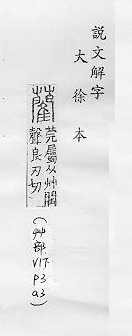 説文解字
大徐本
藺
莞屬从艸閵
聲良刃切
(艸部
V17.
P3
a3)